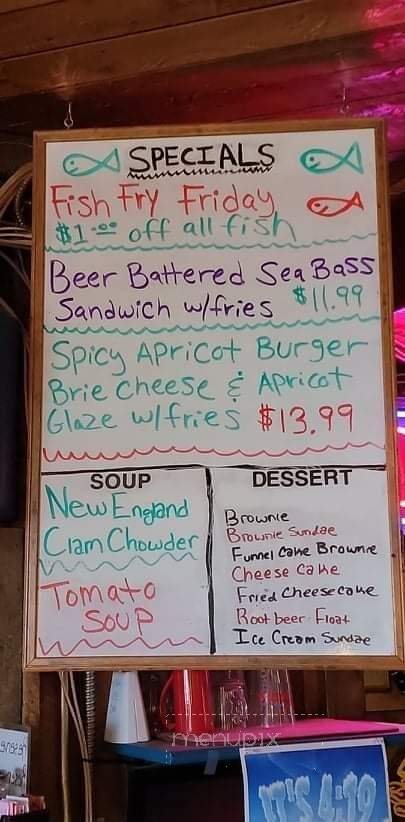 SPECIALS
Fish Fry Friday
$1.00 off all fish
Beer Battered Sea Bass
Sandwich w/fries $11.99
Spicy Apricot Burger
Brie Cheese & Apricot
Glaze w/fries $13.99
SOUP
New England
Clam Chowder
Tomato
Soup
DESSERT
Brownie
Brownie Sundae
Funnel Cake Brownie
Cheese Cake
Fried Cheesecake
Root beer Float
Ice Cream Sundae
menupix
IT'S 4:19